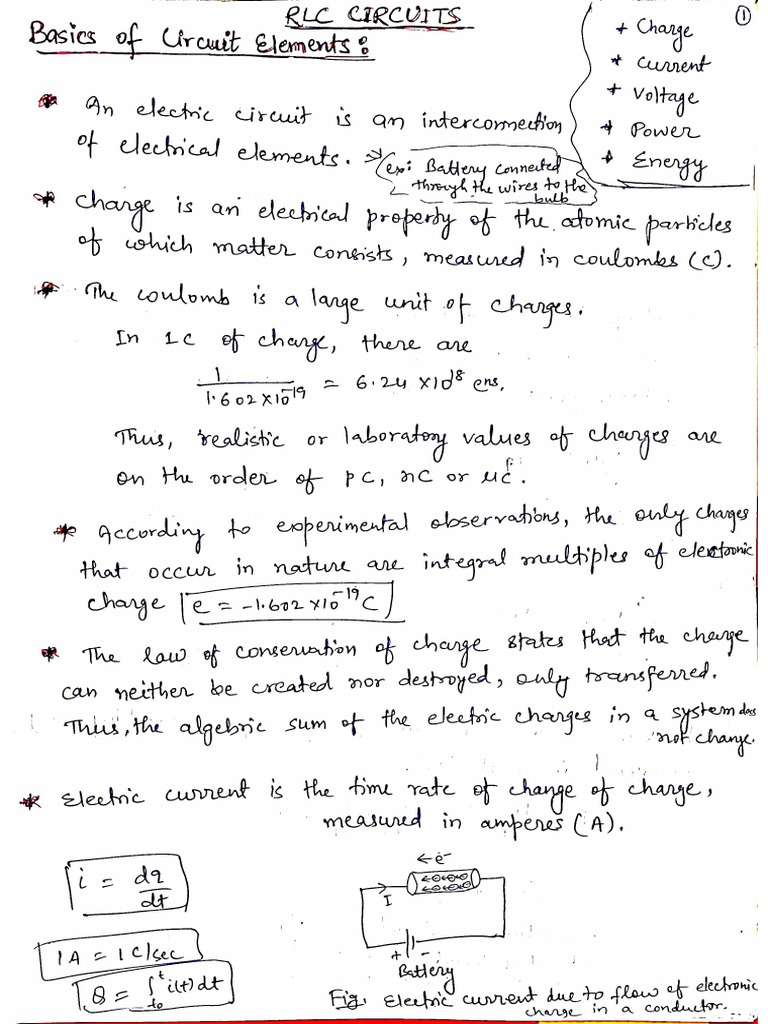 RLC CIRCUITS
①
Basics of Circuit Elements:
* Charge
* Current
* Voltage
* Power
* Energy
* An electric circuit is an interconnection
of electrical elements. → (ex: Battery connected
through the wires to the
bulb
* Charge is an electrical property of the atomic particles
of which matter consists, measured in coulombs (C).
* The coulomb is a large unit of charges.
In 1C of charge, there are
1/1.602×10⁻¹⁹ = 6.24 ×10¹⁸ ens.
Thus, realistic or laboratory values of charges are
on the order of pC, nC or μC.
* According to experimental observations, the only charges
that occur in nature are integral multiples of electronic
charge e = -1.602×10⁻¹⁹C
* The law of conservation of charge states that the charge
can neither be created nor destroyed, only transferred.
Thus, the algebric sum of the electric charges in a system does
not change.
* Electric current is the time rate of change of charge,
measured in amperes (A).
i = dq/dt
1A = 1C/sec
Q = ∫ₜ₀ᵗ i(t) dt
← e⁻
I
+ -
Battery
Fig. Electric current due to flow of electronic
charge in a conductor.